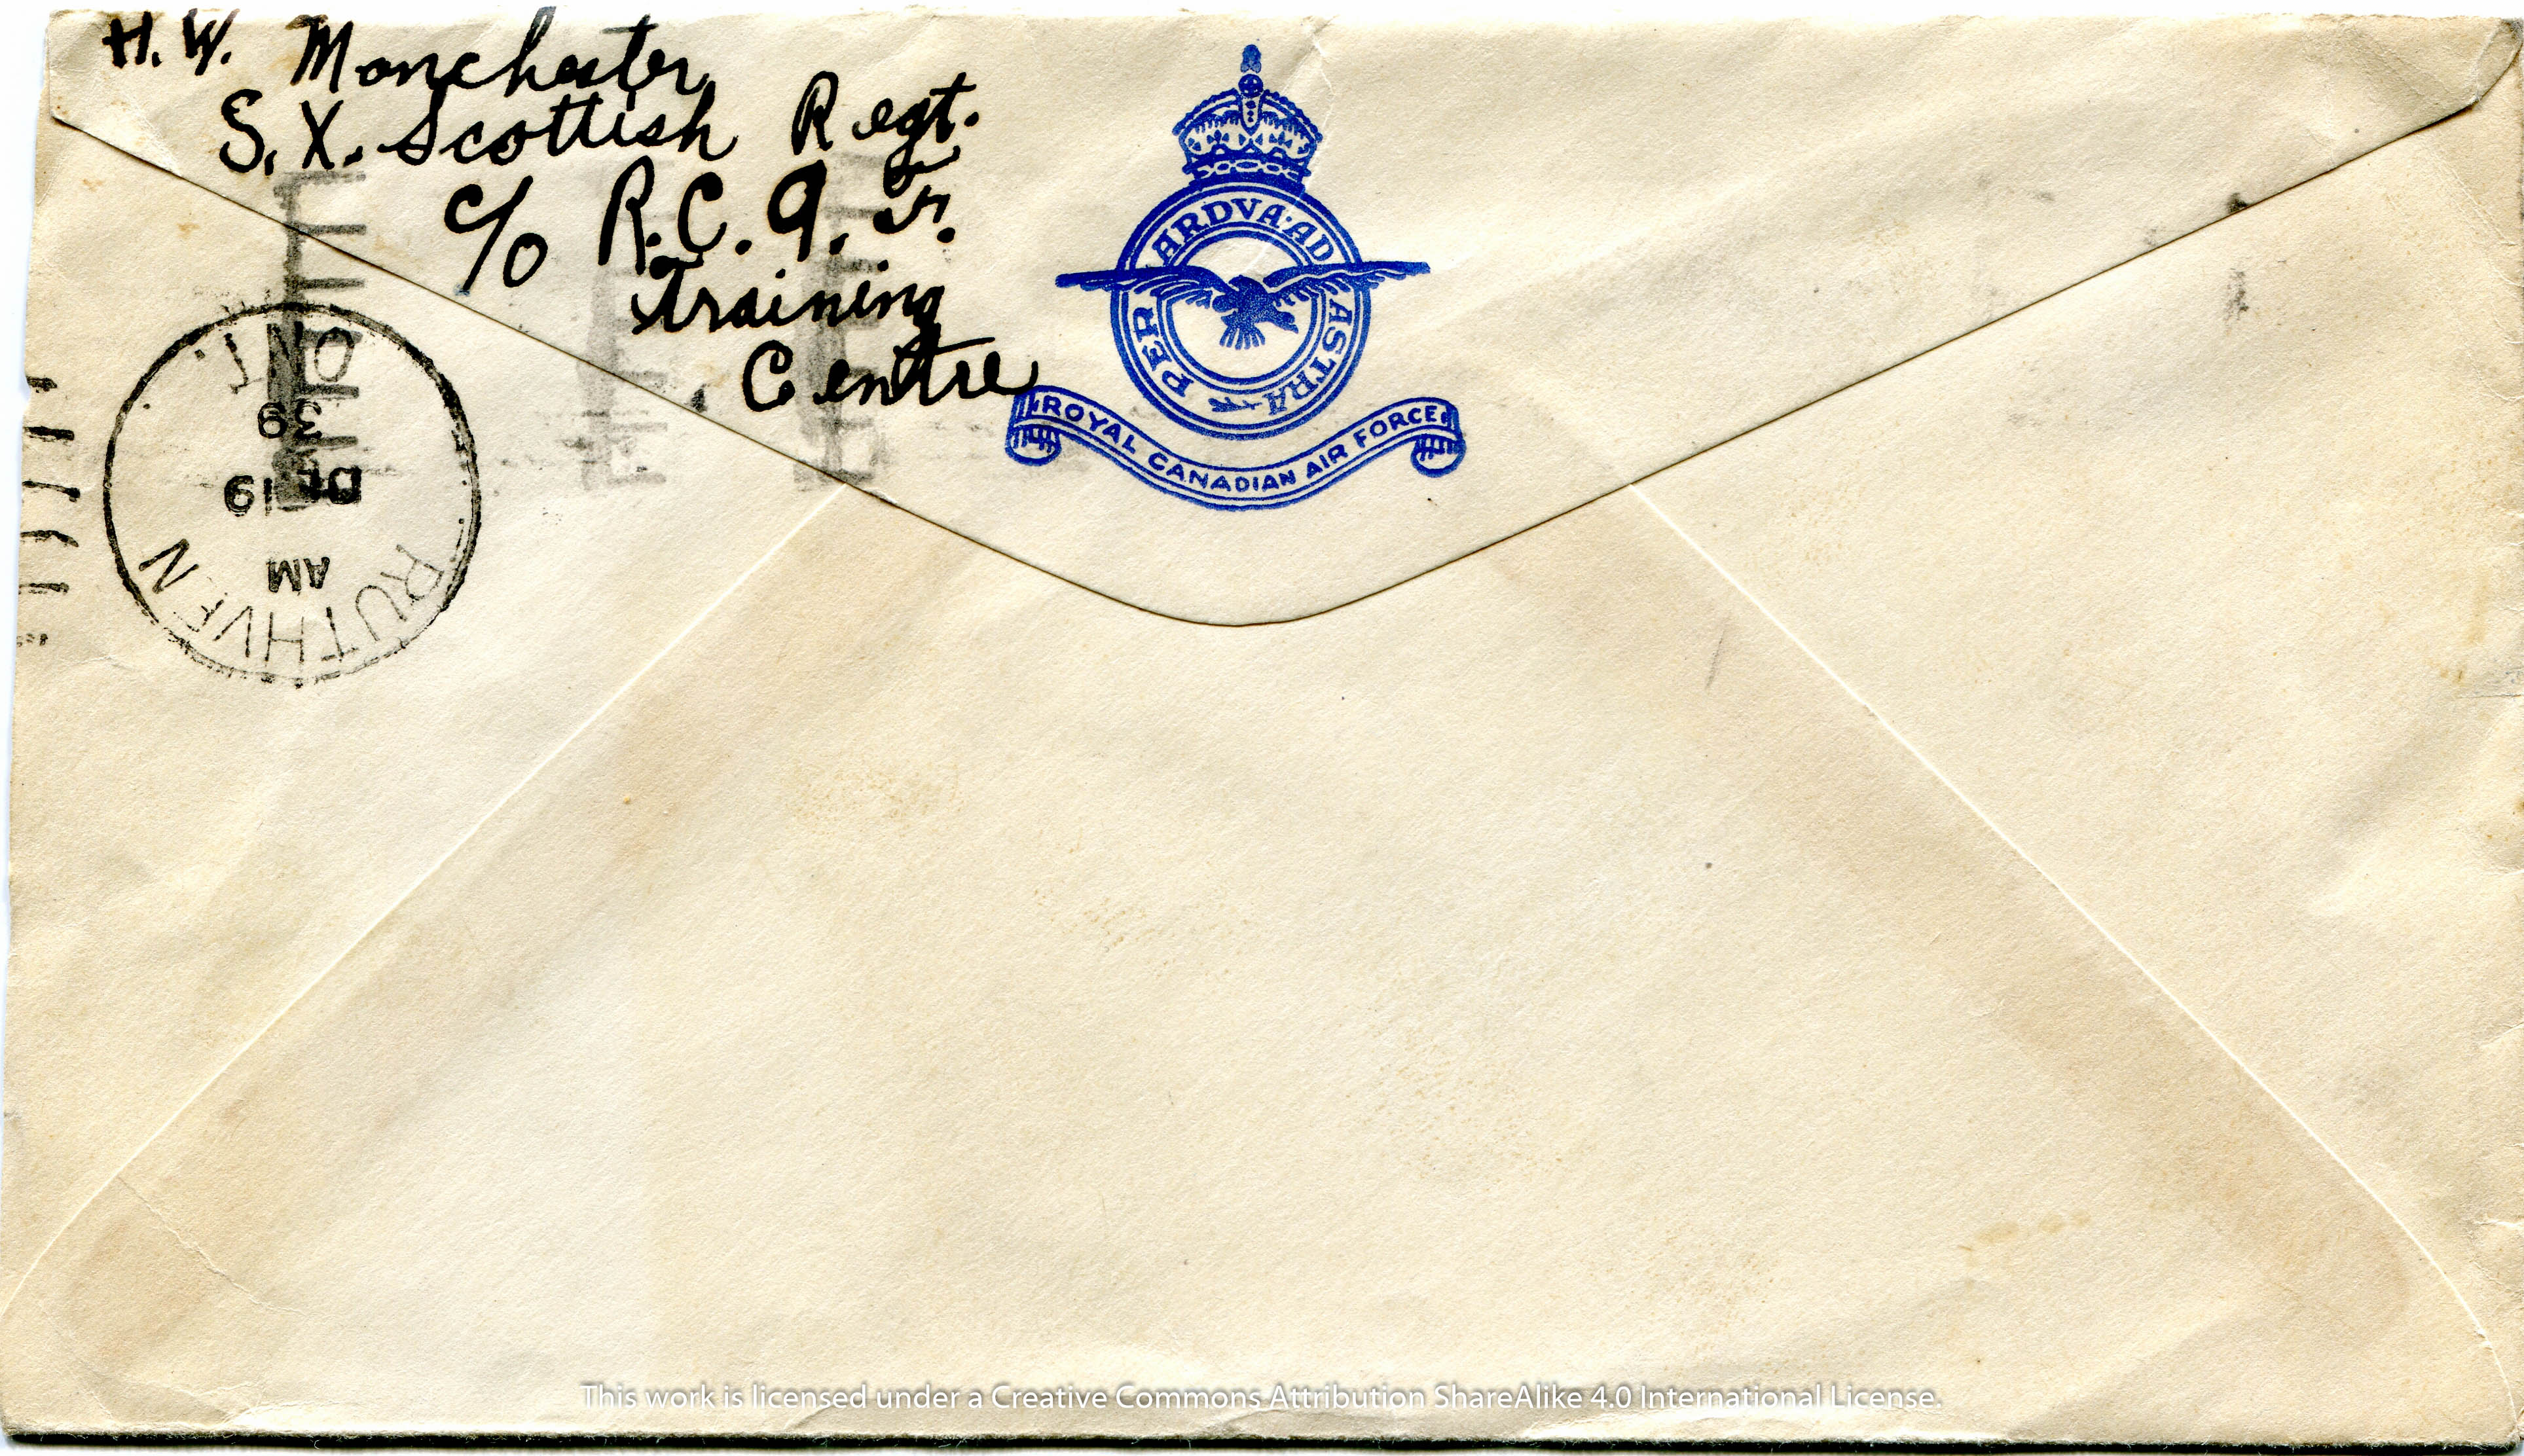 H. W. Manchester
S. X. Scottish Regt.
c/o R.C.A.F.
Training
Centre
PER ARDVA·AD ASTRA
ROYAL CANADIAN AIR FORCE
RUTHVEN
AM
DE 19
39
ONT.
This work is licensed under a Creative Commons Attribution ShareAlike 4.0 International License.